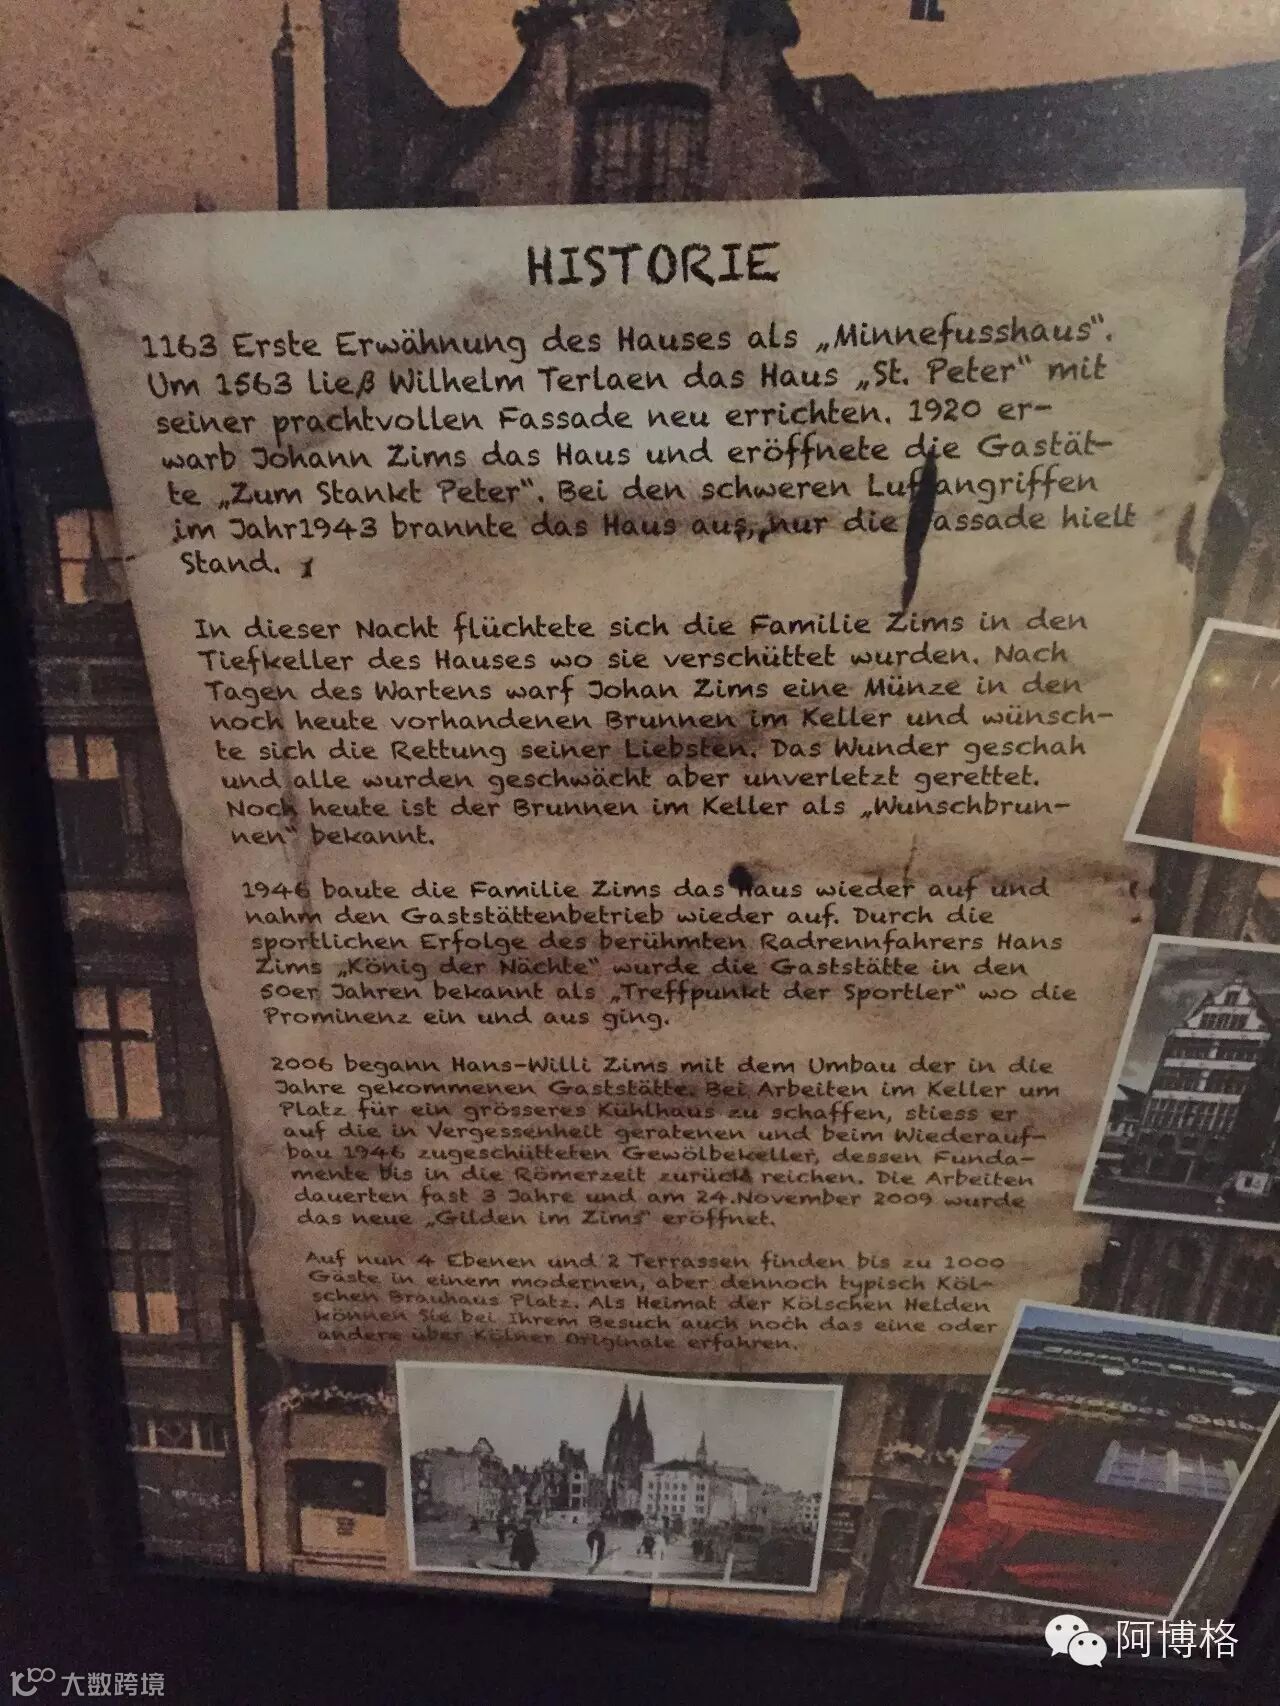 HISTORIE
1163 Erste Erwähnung des Hauses als „Minnefusshaus“.
Um 1563 ließ Wilhelm Terlaen das Haus „St. Peter“ mit
seiner prachtvollen Fassade neu errichten. 1920 er-
warb Johann Zims das Haus und eröffnete die Gastät-
te „Zum Stankt Peter“. Bei den schweren Luftangriffen
im Jahr1943 brannte das Haus aus, nur die Fassade hielt
Stand.
In dieser Nacht flüchtete sich die Familie Zims in den
Tiefkeller des Hauses wo sie verschüttet wurden. Nach
Tagen des Wartens warf Johan Zims eine Münze in den
noch heute vorhandenen Brunnen im Keller und wünsch-
te sich die Rettung seiner Liebsten. Das Wunder geschah
und alle wurden geschwächt aber unverletzt gerettet.
Noch heute ist der Brunnen im Keller als „Wunschbrun-
nen“ bekannt.
1946 baute die Familie Zims das Haus wieder auf und
nahm den Gaststättenbetrieb wieder auf. Durch die
sportlichen Erfolge des berühmten Radrennfahrers Hans
Zims „König der Nächte“ wurde die Gaststätte in den
50er Jahren bekannt als „Treffpunkt der Sportler“ wo die
Prominenz ein und aus ging.
2006 begann Hans-Willi Zims mit dem Umbau der in die
Jahre gekommenen Gaststätte. Bei Arbeiten im Keller um
Platz für ein grösseres Kühlhaus zu schaffen, stiess er
auf die in Vergessenheit geratenen und beim Wiederauf-
bau 1946 zugeschütteten Gewölbekeller, dessen Funda-
mente bis in die Römerzeit zurück reichen. Die Arbeiten
dauerten fast 3 Jahre und am 24.November 2009 wurde
das neue „Gilden im Zims“ eröffnet.
Auf nun 4 Ebenen und 2 Terrassen finden bis zu 1000
Gäste in einem modernen, aber dennoch typisch Köl-
schen Brauhaus Platz. Als Heimat der Kölschen Helden
können Sie bei Ihrem Besuch auch noch das eine oder
andere über Kölner Originale erfahren.
阿博格
大数跨境